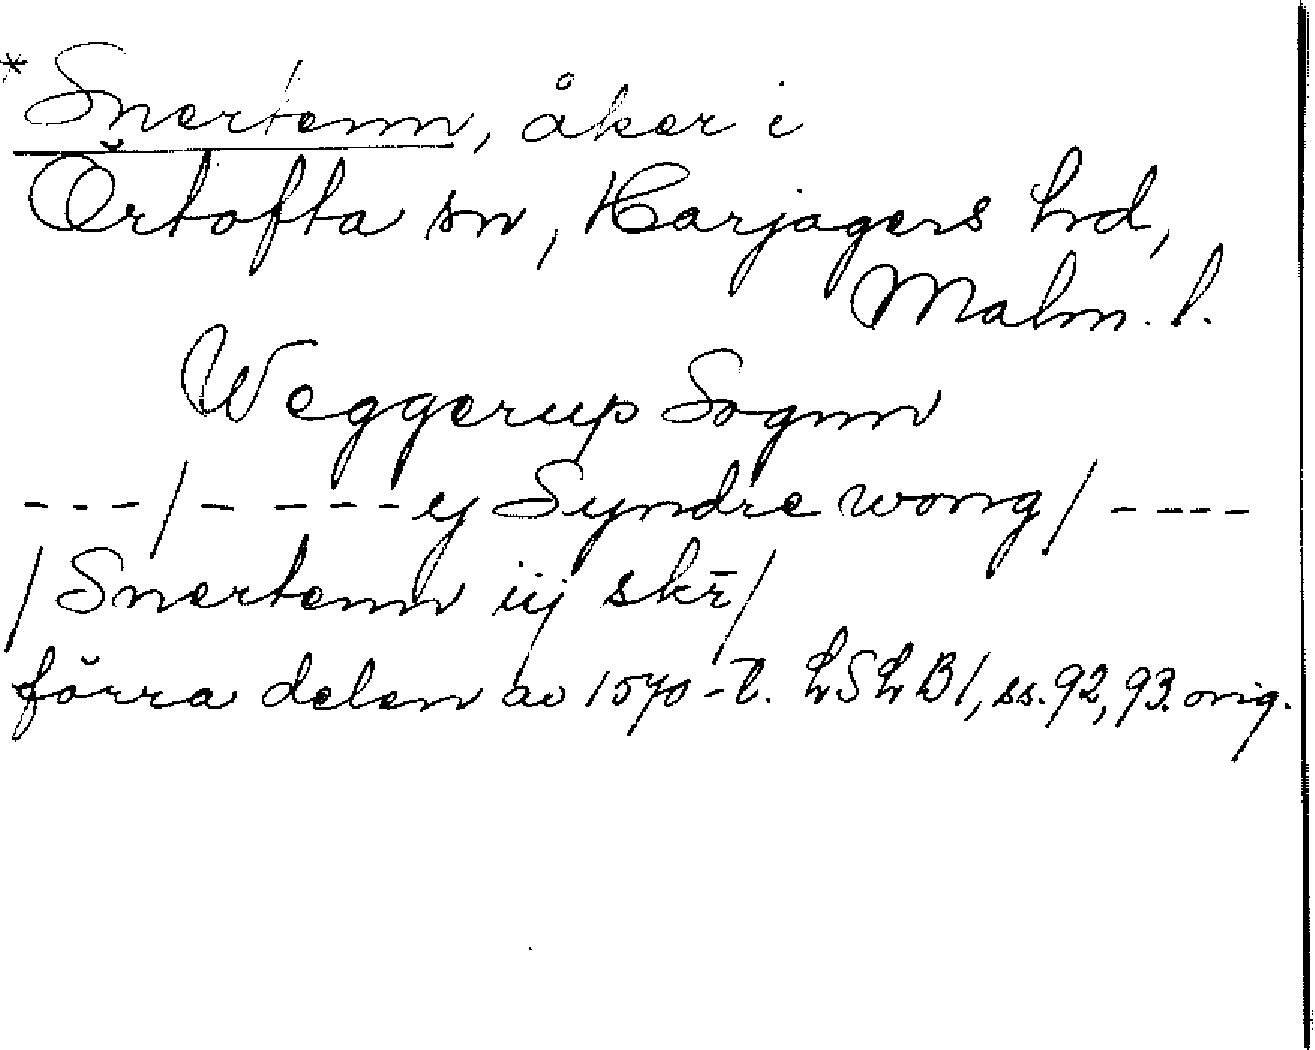 * Snertenn, åker i
Örtofta sn, Harjagers hd,
Malm. l.
Weggerup Sognn
---/-----ej Syndre wong/----
/Snertenn iij skr̄/
förra delen av 1570-t. LSLB1, ss. 92, 93. orig.